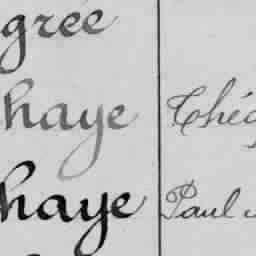 grée
haye Thé
haye Paul